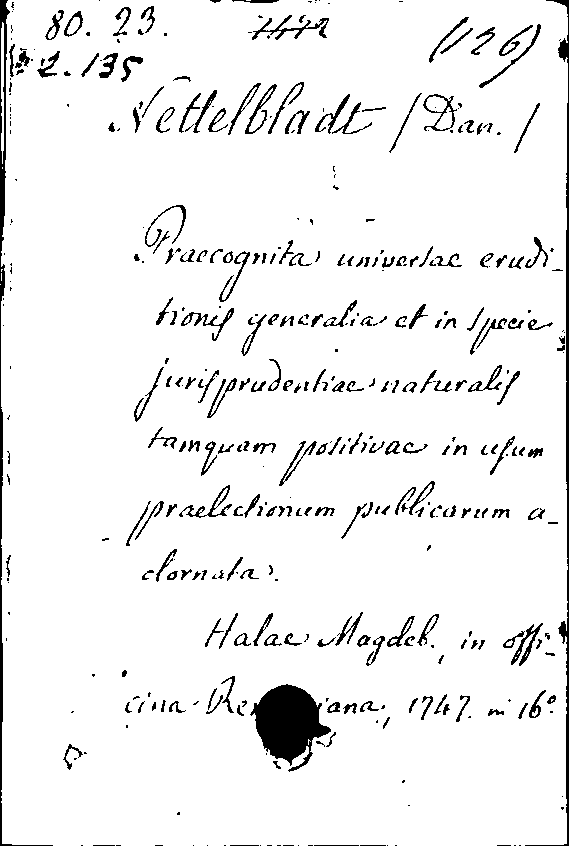 80. 23. 1472 (126)
2.135
Nettelbladt /Dan./
Praecognita universae erudi-
tionis generalia et in specie
jurisprudentiae naturalis
tamquam positivae in usum
praelectionum publicarum a-
dornata.
Halae Magdeb., in offi-
cina iana, 1747. in 16º